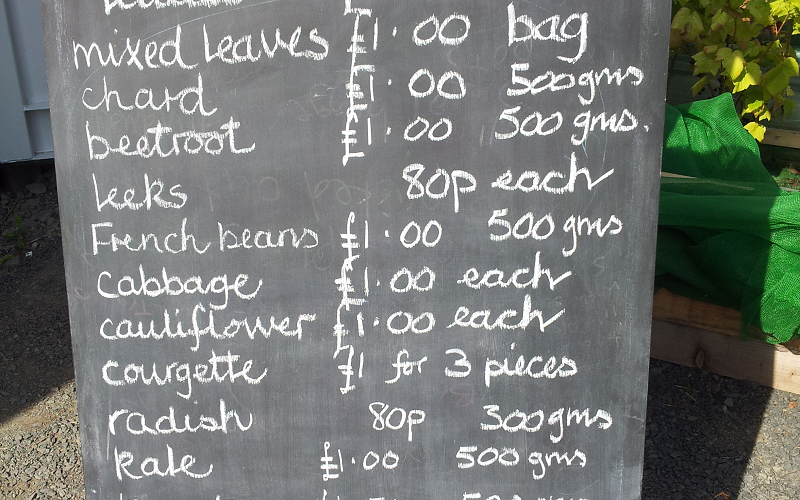 mixed leaves £1.00 bag
chard £1.00 500gms
beetroot £1.00 500 gms.
leeks 80p each
French beans £1.00 500 gms
cabbage £1.00 each
cauliflower £1.00 each
courgette £1 for 3 pieces
radish 80p 300gms
kale £1.00 500 gms